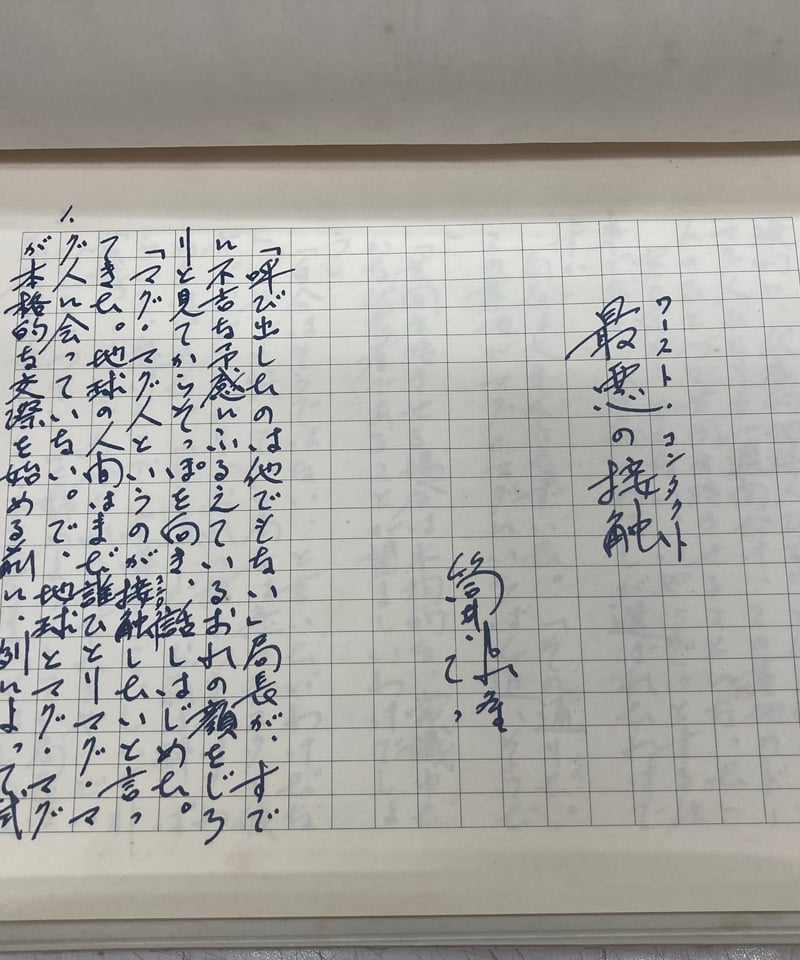 ワースト・コンタクト
最悪の接触
筒井康隆
「呼び出したのは他でもない」局長が、すで
に不吉な予感にふるえているおれの顔をじろ
りと見てからそっぽを向き、話しはじめた。
「マグ・マグ人というのが接触したいと言っ
てきた。地球の人間はまだ誰ひとりマグ・マ
グ人に会っていない。で、地球とマグ・マグ
が本格的な交際を始める前に、例によって、式
1.